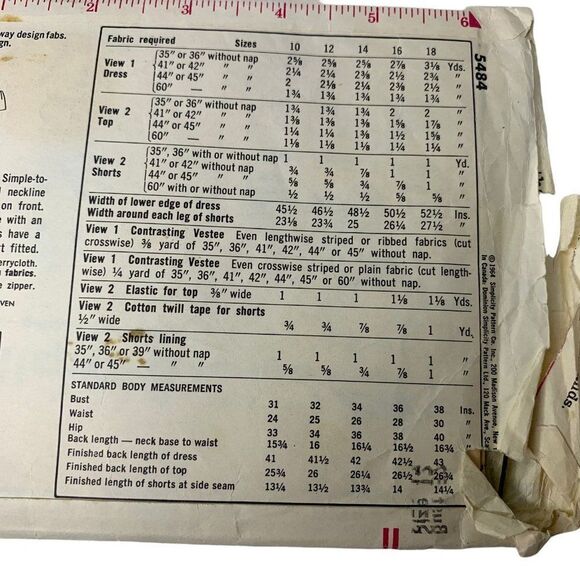 1 2 3 4 5 6
way design fabs.
gn.
Simple-to-
neckline
on front.
e with an
s have a
rt fitted.
errycloth.
n fabrics.
e zipper.
VEN
Fabric required Sizes 10 12 14 16 18
View 1 Dress
35″ or 36″ without nap 2⅝ 2⅝ 2⅝ 2⅞ 3⅛ Yds.
41″ or 42″ ″ ″ 2¼ 2¼ 2⅜ 2½ 2¾ ″
44″ or 45″ ″ ″ 2 2 2⅜ 2⅜ 2½ ″
60″ — ″ ″ 1¾ 1¾ 1¾ 1¾ 1¾ ″
View 2 Top
35″ or 36″ without nap 1¾ 1¾ 1¾ 2 2 ″
41″ or 42″ ″ ″ 1⅜ 1⅜ 1⅜ 1⅝ 1⅞ ″
44″ or 45″ ″ ″ 1¼ 1¼ 1⅜ 1½ 1⅝ ″
60″ — ″ ″ 1⅛ 1⅛ 1⅛ 1¼ 1¼ ″
View 2 Shorts
35″, 36″ with or without nap 1 1 1 1 1 Yd.
41″ or 42″ without nap ¾ ¾ ⅞ 1 1 ″
44″ or 45″ ″ ″ ⅝ ⅝ ¾ ⅞ 1 ″
60″ with or without nap ½ ½ ½ ⅝ ⅝ ″
Width of lower edge of dress 45½ 46½ 48½ 50½ 52½ Ins.
Width around each leg of shorts 23⅛ 23¾ 25 26¼ 27½ ″
View 1 Contrasting Vestee Even lengthwise striped or ribbed fabrics (cut
crosswise) ⅜ yard of 35″, 36″, 41″, 42″, 44″ or 45″ without nap.
View 1 Contrasting Vestee Even crosswise striped or plain fabric (cut length-
wise) ¼ yard of 35″, 36″, 41″, 42″, 44″, 45″ or 60″ without nap.
View 2 Elastic for top ⅜″ wide 1 1 1 1⅛ 1⅛ Yds.
View 2 Cotton twill tape for shorts
½″ wide ¾ ¾ ⅞ ⅞ 1 Yd.
View 2 Shorts lining
35″, 36″ or 39″ without nap 1 1 1 1 1 ″
44″ or 45″ — ″ ″ ⅝ ⅝ ¾ ⅞ 1 ″
STANDARD BODY MEASUREMENTS
Bust 31 32 34 36 38 Ins.
Waist 24 25 26 28 30 ″
Hip 33 34 36 38 40 ″
Back length — neck base to waist 15¾ 16 16¼ 16½ 16¾ ″
Finished back length of dress 41 41½ 42 42½ 43
Finished back length of top 25¾ 26 26¼ 26½ 26¾
Finished length of shorts at side seam 13¼ 13½ 13¾ 14 14¼
5484
© 1964 Simplicity Pattern Co. Inc., 200 Madison Avenue, New
In Canada: Dominion Simplicity Pattern Ltd., 120 Mack Ave., Sca
uds.